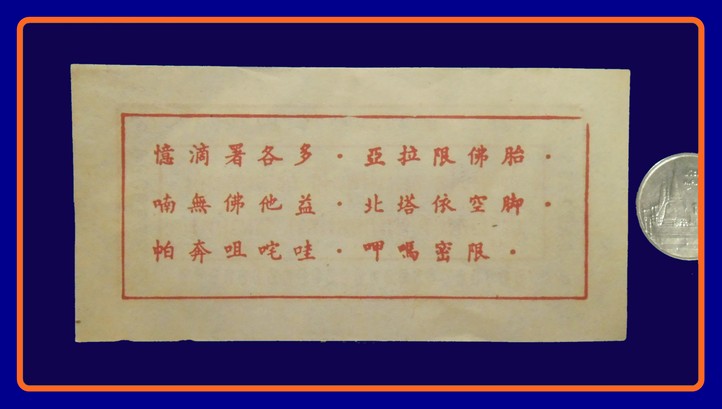 憶滴署各多・亞拉限佛胎・
喃無佛他益・北塔依空脚・
帕奔咀咤哇・呷嗎密限・